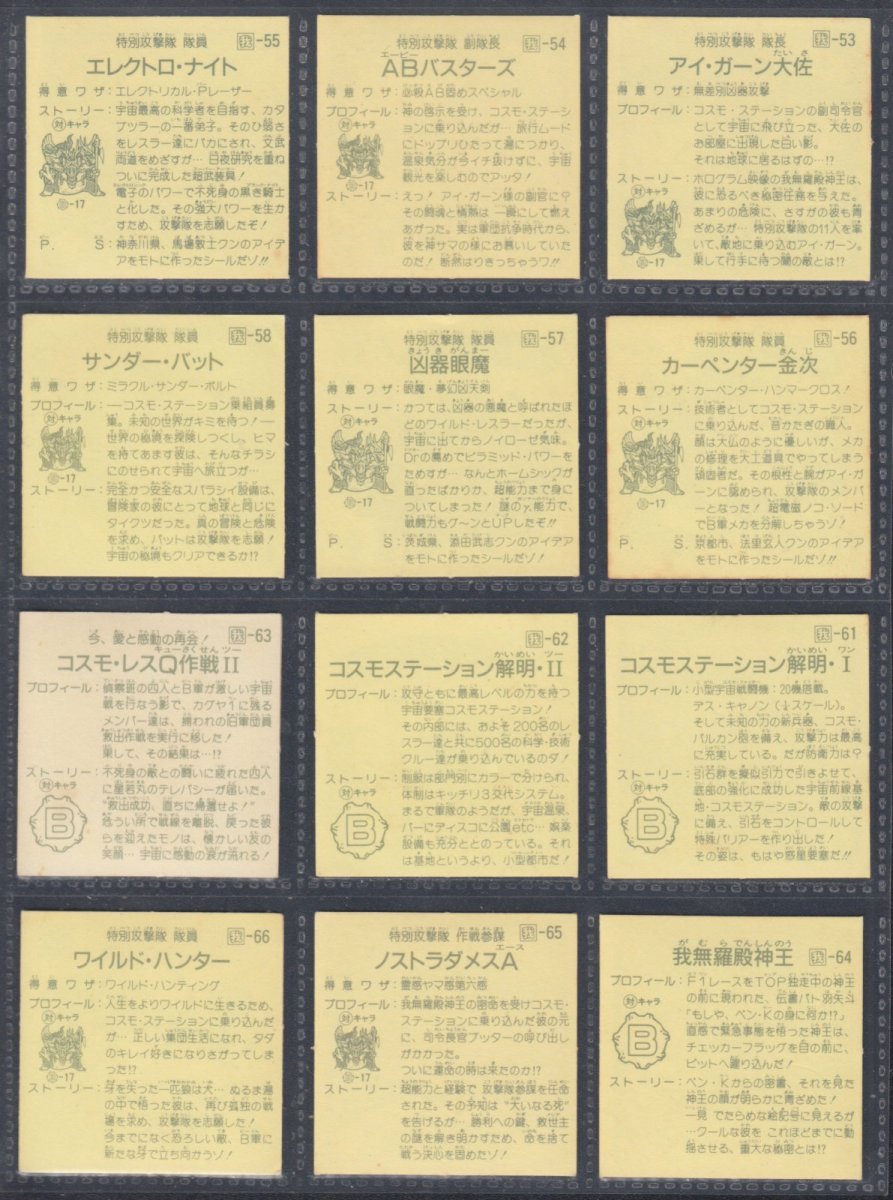 特別攻撃隊 隊員
我-55
エレクトロ・ナイト
得意ワザ：エレクトリカル・Pレーザー
ストーリー：宇宙最高の科学者を目指す、カタ
ブツラーの一番弟子。そのひ弱さ
をレスラー達にバカにされ、文武
両道をめざすが…日夜研究を重ね
ついに完成した超武装具！
電子のパワーで不死身の黒き騎士
と化した。その強大パワーを生か
すため、攻撃隊を志願したぞ！
対キャラ
-17
P.S：神奈川県、馬場敦士クンのアイデ
アをモトに作ったシールだゾ!!
特別攻撃隊 副隊長
我-54
エービー
ABバスターズ
得意ワザ：必殺AB固めスペシャル
プロフィール：神の啓示を受け、コスモ・ステーション
に乗り込んだが…旅行ムード
にドップリひたって湯につかり、
温泉気分が今イチ抜けずに、宇宙
観光を楽しむのでアッタ！
対キャラ
-17
ストーリー：えっ！アイ・ガーン様の副官に？
その闘魂と情熱は 一瞬にして燃え
あがった。実は軍団抗争時代から、
彼を神サマの様にお慕いしていた
のだ！断然はりきっちゃうワ!!
特別攻撃隊 隊長
我-53
たいさ
アイ・ガーン大佐
得意ワザ：無差別凶器攻撃
プロフィール：コスモ・ステーションの副司令官
として宇宙に飛び立った、大佐の
お部屋に出現した白い影。
それは地球に居るはずの…!?
対キャラ
-17
ストーリー：ホログラム映像の我無羅殿神王は、
彼に恐るべき秘密任務を与えた。
あまりの危険に、さすがの彼も青
ざめるが…特別攻撃隊の11人を率
いて、敵地に乗り込むアイ・ガーン。
果して行手に待つ闇の敵とは!?
特別攻撃隊 隊員
我-58
サンダー・バット
得意ワザ：ミラクル・サンダー・ボルト
プロフィール：――コスモ・ステーション乗組員募
集。未知の世界がキミを待つ！―
世界の秘境を探険しつくし、ヒマ
を持てあます彼は、そんなチラシ
にのせられて宇宙へ旅立つが…
対キャラ
-17
ストーリー：完全かつ安全なスバラシイ設備は、
冒険家の彼にとって地球と同じに
タイクツだった。真の冒険と危険
を求め、バットは攻撃隊を志願！
宇宙の秘境もクリアできるか!?
特別攻撃隊 隊員
我-57
きょうきがんまー
凶器眼魔
得意ワザ：眼魔・夢幻凶天剣
ストーリー：かつては、凶器の悪魔と呼ばれたほ
どのワイルド・レスラーだったが、
宇宙に出てからノイローゼ気味。
Drの薦めでピラミッド・パワーを
ためすが…なんとホームシックが
直ったばかりか、超能力まで身に
ついてしまった！謎のγ能力で、
戦闘力もグーンとUPしたぞ!!
対キャラ
-17
P.S：茨城県、添田武志クンのアイデア
をモトに作ったシールだゾ!!
特別攻撃隊 隊員
我-56
きんじ
カーペンター金次
得意ワザ：カーペンター・ハンマークロス！
ストーリー：技術者としてコスモ・ステーション
に乗り込んだ、音かたぎの職人。
顔は大仏のように優しいが、メカ
の修理を大工道具でやってしまう
頑固者だ。その根性と腕がアイ・ガ
ーンに認められ、攻撃隊のメンバ
ーとなった！超電磁ノコ・ソード
でB軍メカを分解しちゃうゾ！
対キャラ
-17
P.S：京都市、法里玄人クンのアイデア
をモトに作ったシールだゾ！
今、愛と感動の再会！
我-63
キューさくせん ツー
コスモ・レスQ作戦II
プロフィール：偵察班の四人とB軍が激しい宇宙
戦を行なう影で、カゲヤイに残る
メンバー達は、捕われの旧軍団員
救出作戦を実行に移した！
果して、その結果は…!?
ストーリー：不死身の敵との闘いに疲れた四人
に星若丸のテレパシーが届いた。
“救出成功、直ちに帰還せよ！”
危うい所で戦線を離脱、戻った彼
らを迎えたモノは、懐かしい友の
笑顔…宇宙に感動の涙が流れる！
対キャラ
B
我-62
かいめい ツー
コスモステーション解明・II
プロフィール：攻守ともに最高レベルの力を持つ
宇宙要塞コスモステーション！
その内部には、およそ200名のレ
スラー達と共に500名の科学・技術
クルー達が乗り込んでいるのダ！
ストーリー：制服は部門別にカラーで分けられ、
体制はキッチリ3交代システム。
まるで軍隊のようだが、宇宙温泉、
バーにディスコに公園etc…娯楽
設備も充分ととのっている。それ
は基地というより、小型都市だ！
対キャラ
B
我-61
かいめい ワン
コスモステーション解明・I
プロフィール：小型宇宙戦闘機：20機搭載。
デス・キャノン（½スケール）。
そして未知の力の新兵器、コスモ・
バルカン砲を備え、攻撃力は最高
に充実している。だが防衛力は？
ストーリー：引石群を擬似引力で引きよせて、
底部の強化に成功した宇宙前線基
地・コスモステーション。敵の攻撃
に備え、引石をコントロールして
特殊バリアーを作り出した！
その姿は、もはや惑星要塞だ!!
対キャラ
B
特別攻撃隊 隊員
我-66
ワイルド・ハンター
得意ワザ：ワイルド・ハンティング
プロフィール：人生をよりワイルドに生きるため、
コスモ・ステーションに乗り込んだ
が…正しい集団生活になれ、タダ
のキレイ好きになりさがってしま
った!?
対キャラ
-17
ストーリー：牙を失った一匹狼は犬…ぬるま湯
の中で悟った彼は、再び孤独の戦
場を求め、攻撃隊を志願した！
今までになく恐ろしい敵、B軍に
新たな牙で立ち向かうゾ！
特別攻撃隊 作戦参謀
我-65
エース
ノストラダメスA
得意ワザ：霊感ヤマ感第六感
プロフィール：我無羅殿神王の密命を受けコスモ・
ステーションに乗り込んだ彼の元
に、司令長官ブッターの呼び出し
がかかった。
ついに運命の時は来たのか!?
対キャラ
-17
ストーリー：超能力と経験で 攻撃隊参謀を任命
された。その予知は“大いなる死”
を告げるが…勝利への鍵、救世主
の謎を解き明かすため、命を捨て
戦う決心を固めたゾ！
がむらでんしんのう
我無羅殿神王
我-64
プロフィール：F1レースをTOP独走中の神王
の前に現われた、伝書バト羽矢斗
「もしや、ベン・Kの身に何か!?」
直感で緊急事態を悟った神王は、
チェッカーフラッグを目の前に、
ピットへ躍り込んだ！
対キャラ
B
ストーリー：ベン・Kからの密書、それを見た
神王の顔が明らかに青ざめた！
一見 でたらめな絵記号に見えるが
…クールな彼を これほどまでに動
揺させる、重大な秘密とは!?